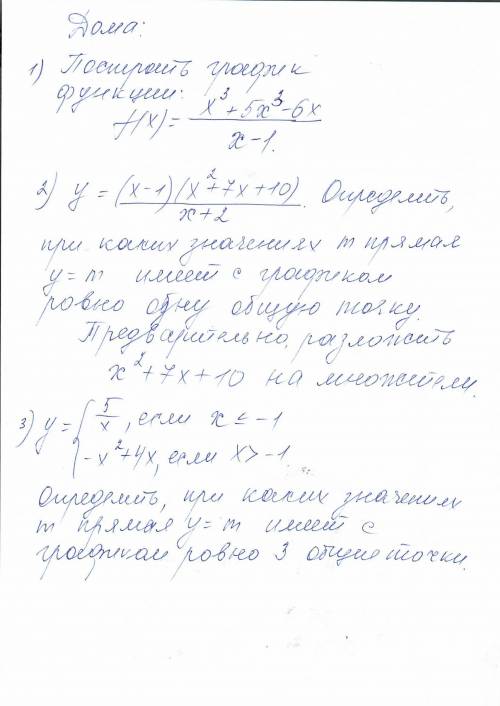 Дома:
1) Построить график
функции:
f(x) = (x³+5x³-6x)/(x-1).
2) y = (x-1)(x²+7x+10)/(x+2). Определить,
при каких значениях m прямая
y=m имеет с графиком
ровно одну общую точку.
Предварительно разложить
x²+7x+10 на множители.
3) y = { 5/x, если x ≤ -1
-x²+4x, если x > -1.
Определить, при каких значениях
m прямая y=m имеет с
графиком ровно 3 общие точки.